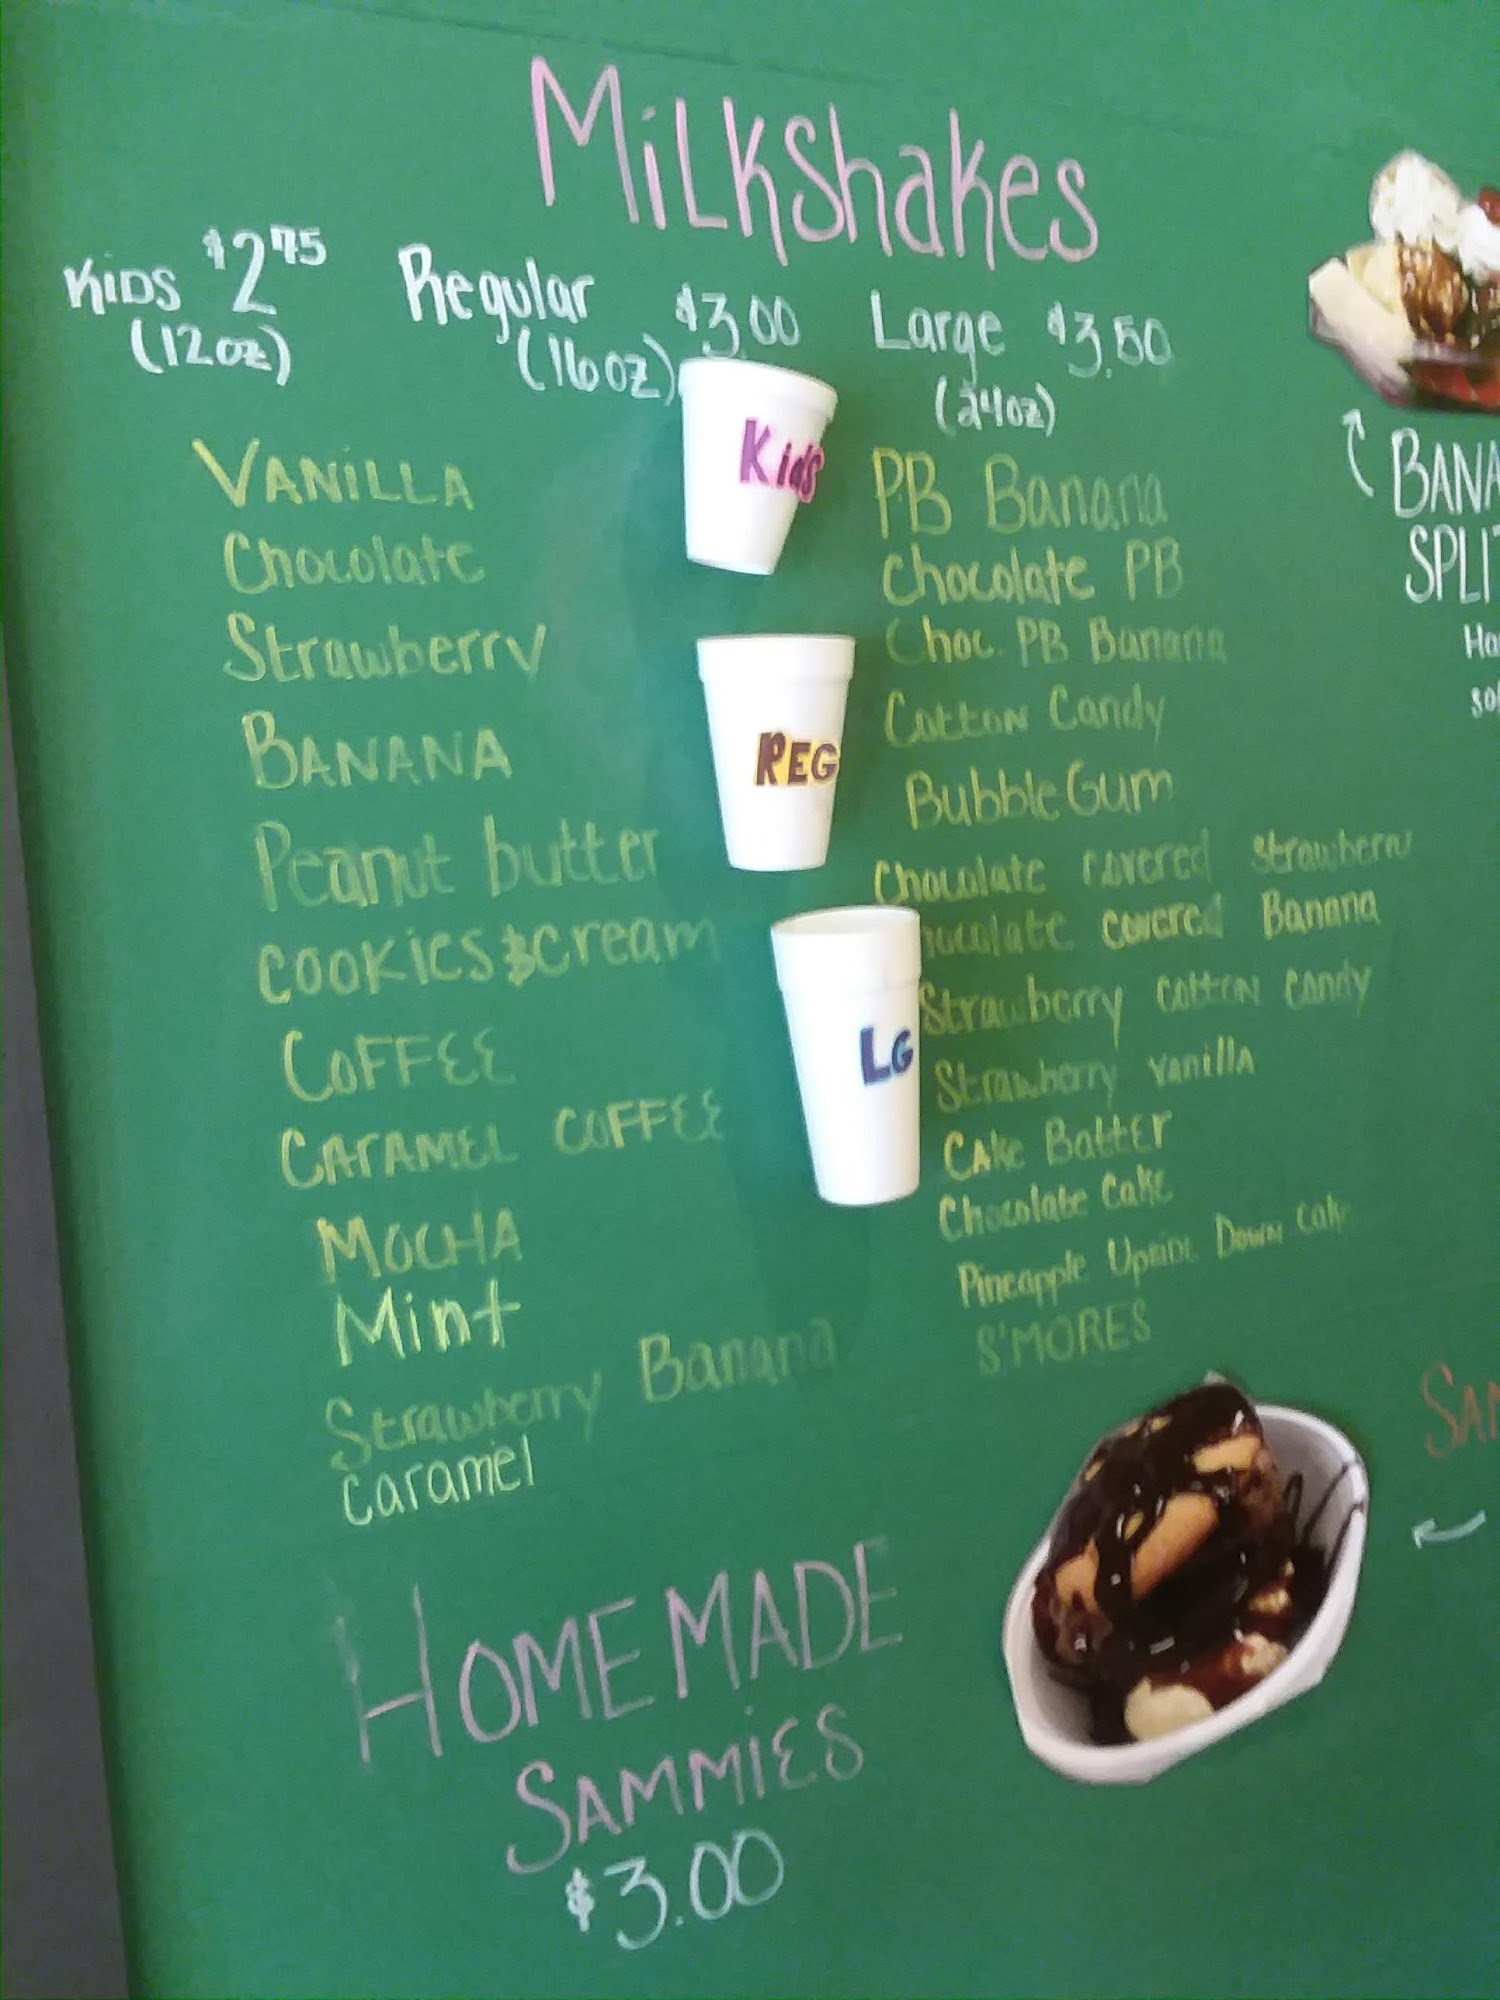 Milkshakes
Kids $2.75 Regular $3.00 Large $3.50
(12oz) (16oz) (24oz)
VANiLLA
Chocolate
Strawberry
BANANA
Peanut butter
cookies & cream
COFFEE
CARAMEL COFFEE
MOCHA
Mint
Strawberry Banana
caramel
Kids
REG
LG
PB Banana
Chocolate PB
Choc. PB Banana
Cotton Candy
Bubble Gum
Chocolate covered strawberry
hocolate covered Banana
Strawberry cotton candy
Strawberry vanilla
CAke Batter
Chocolate Cake
Pineapple Upside Down cake
S'MORES
HOMEMADE
SAMMiES
$3.00
BANA
SPLIT